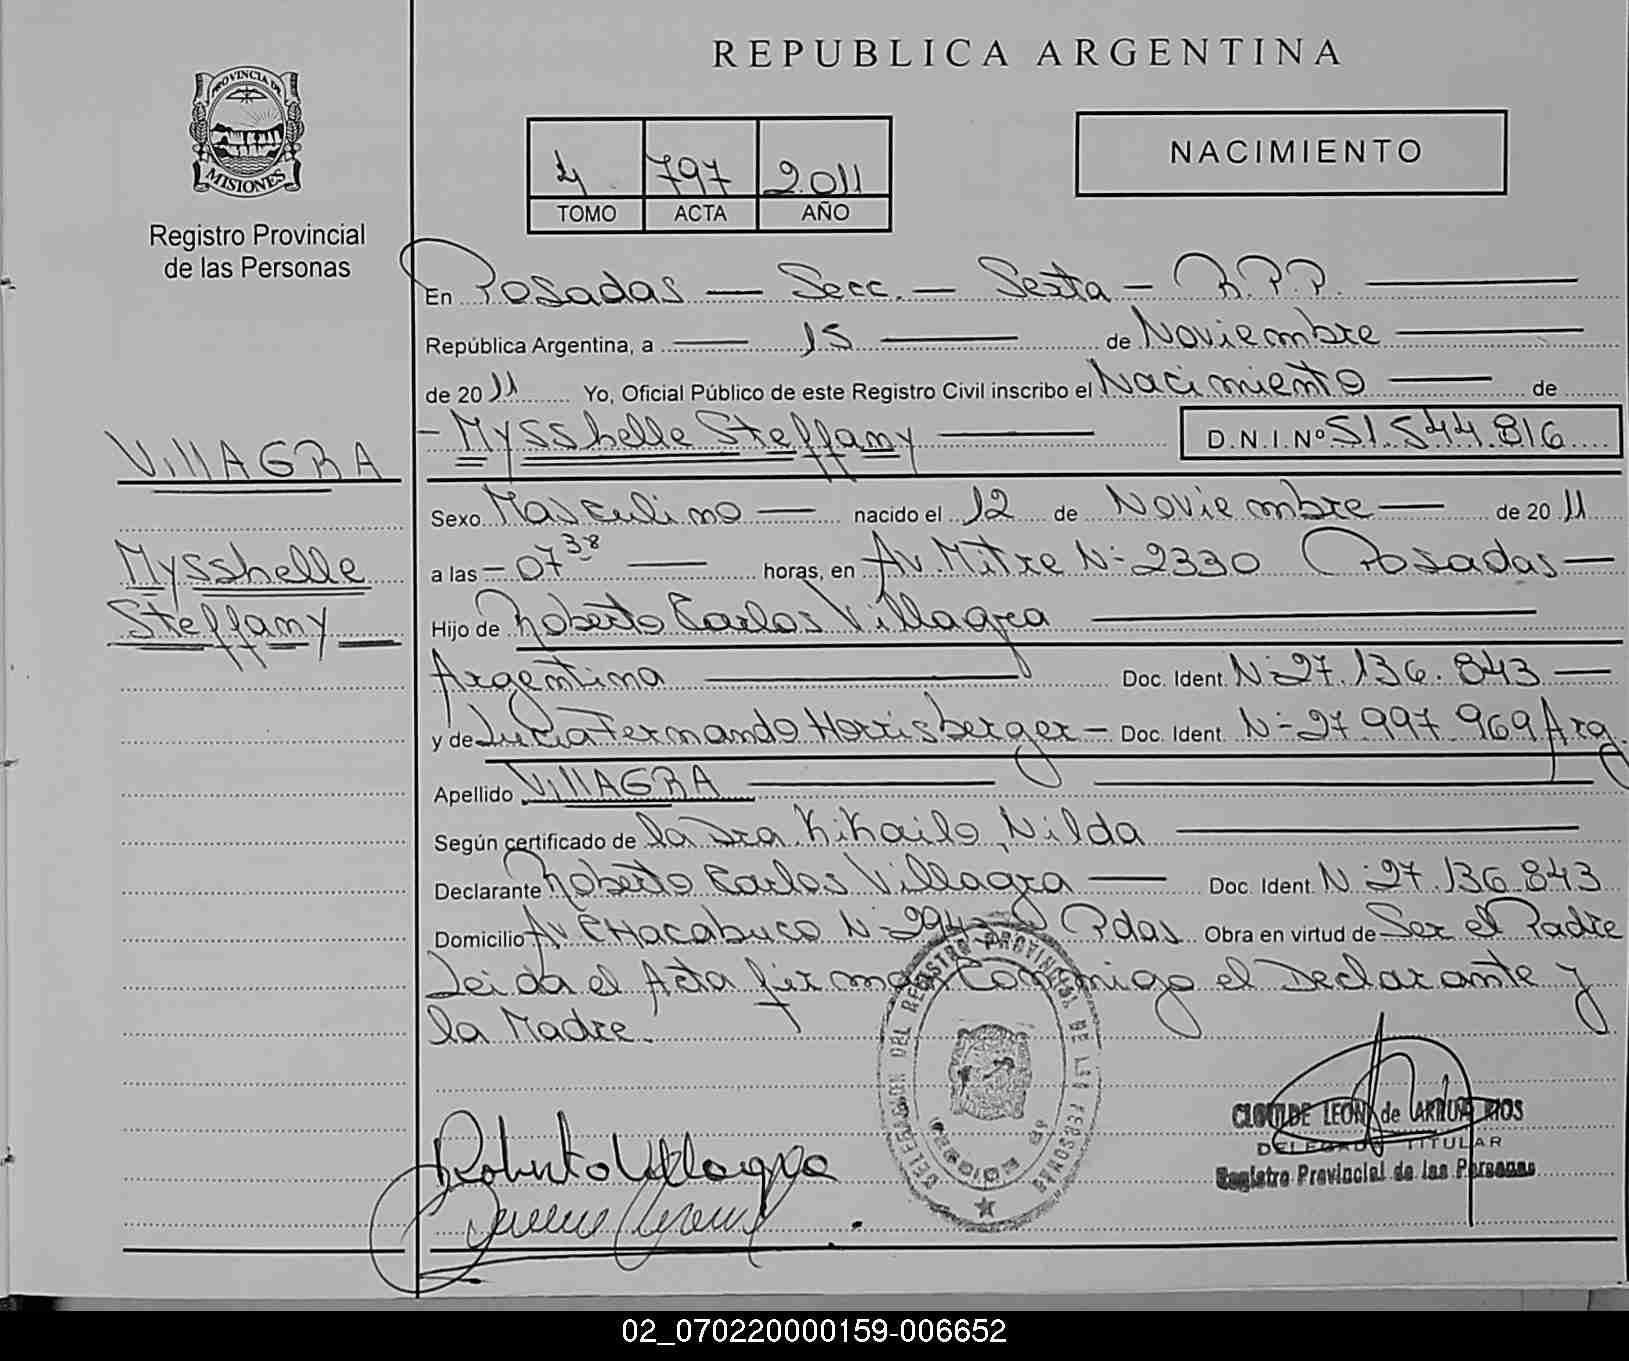 REPUBLICA ARGENTINA
PROVINCIA DE
MISIONES
Registro Provincial
de las Personas
4 797 2.011
TOMO ACTA AÑO
NACIMIENTO
En Posadas — Secc. — Sexta — R.P.P. —
República Argentina, a — 15 — de Noviembre —
de 2011 Yo, Oficial Público de este Registro Civil inscribo el Nacimiento — de
— Mysshelle Steffany — D.N.I.Nº 51.544.816
VillAGRA
Mysshelle
Steffany —
Sexo Masculino — nacido el 12 de Noviembre — de 2011
a las — 07 38 — horas, en Av. Mitre Nº 2330 Posadas —
Hijo de Roberto Carlos Villagra —
Argentina — Doc. Ident. Nº 27.136.843 —
y de Lucia Fernando Horrisberger — Doc. Ident. Nº 27.997.969 Arg.
Apellido VillAGRA —
Según certificado de la Dra Kikailo, Nilda —
Declarante Roberto Carlos Villagra — Doc. Ident. Nº 27.136.843
Domicilio Av CHacabuco Nº Pdas Obra en virtud de Ser el Padre
Leida el Acta firma Conmigo el Declarante y
la Madre.
DELEGACION DEL REGISTRO PROVINCIAL DE LAS PERSONAS
CLOTILDE LEON de ARRUA RIOS
DELEGADO TITULAR
Registro Provincial de las Personas
Roberto Villagra
02_070220000159-006652